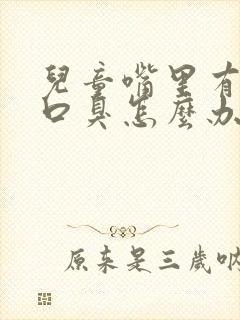 兒童嘴里有
口臭怎麼办
原来是三歲吶